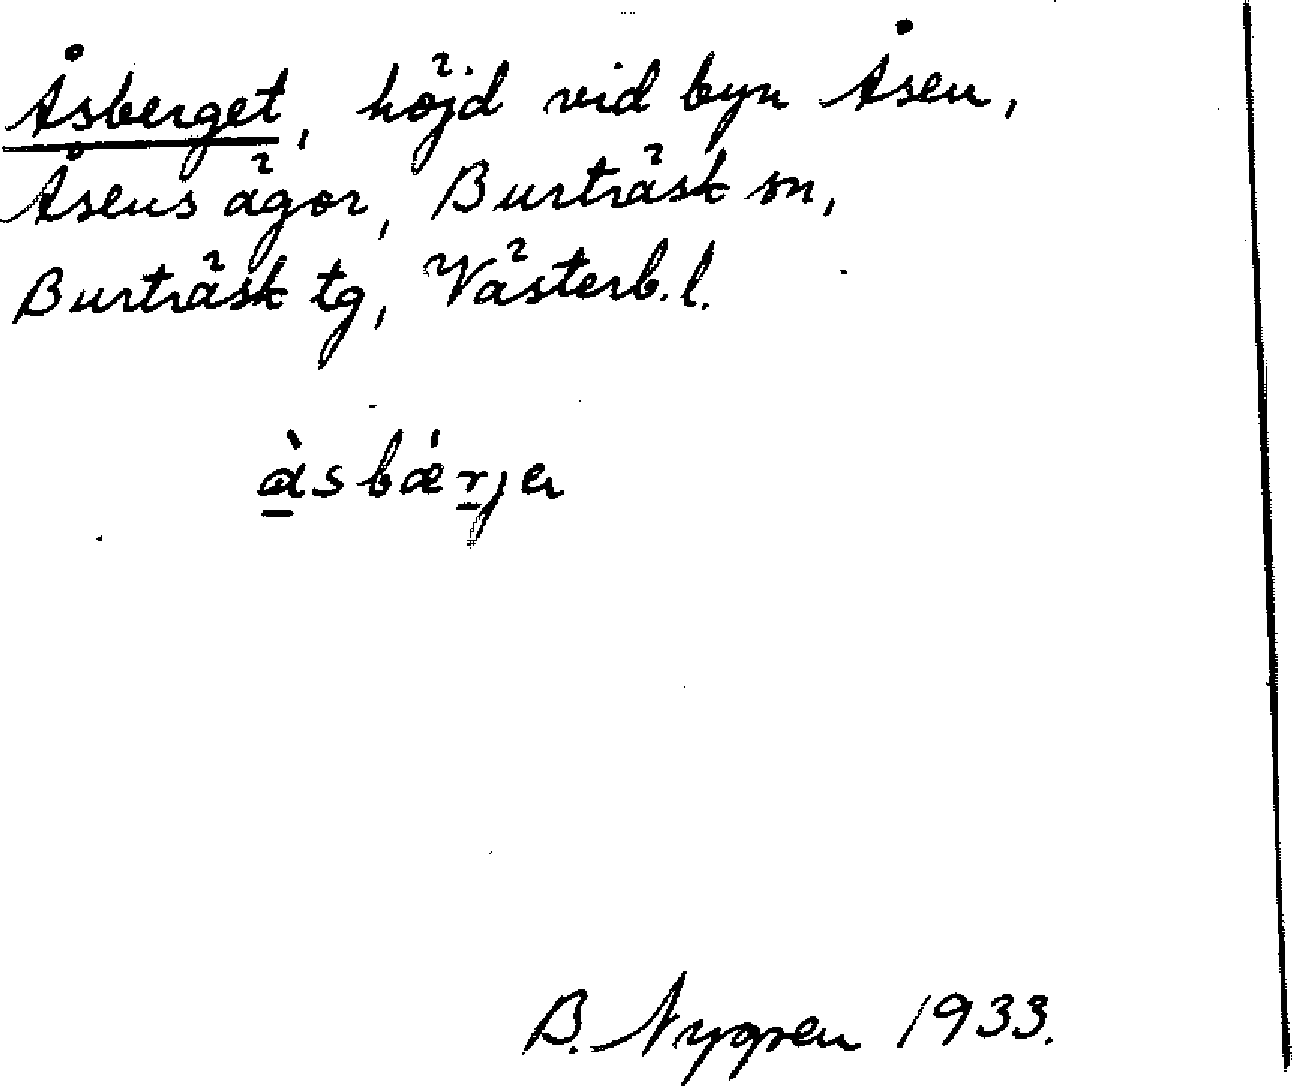 Åsberget, höjd vid byn Åsen,
Åsens ägor, Burträsk sn,
Burträsk tg, Västerb. l.
àsbǽrjɐ
B. Nygren 1933.